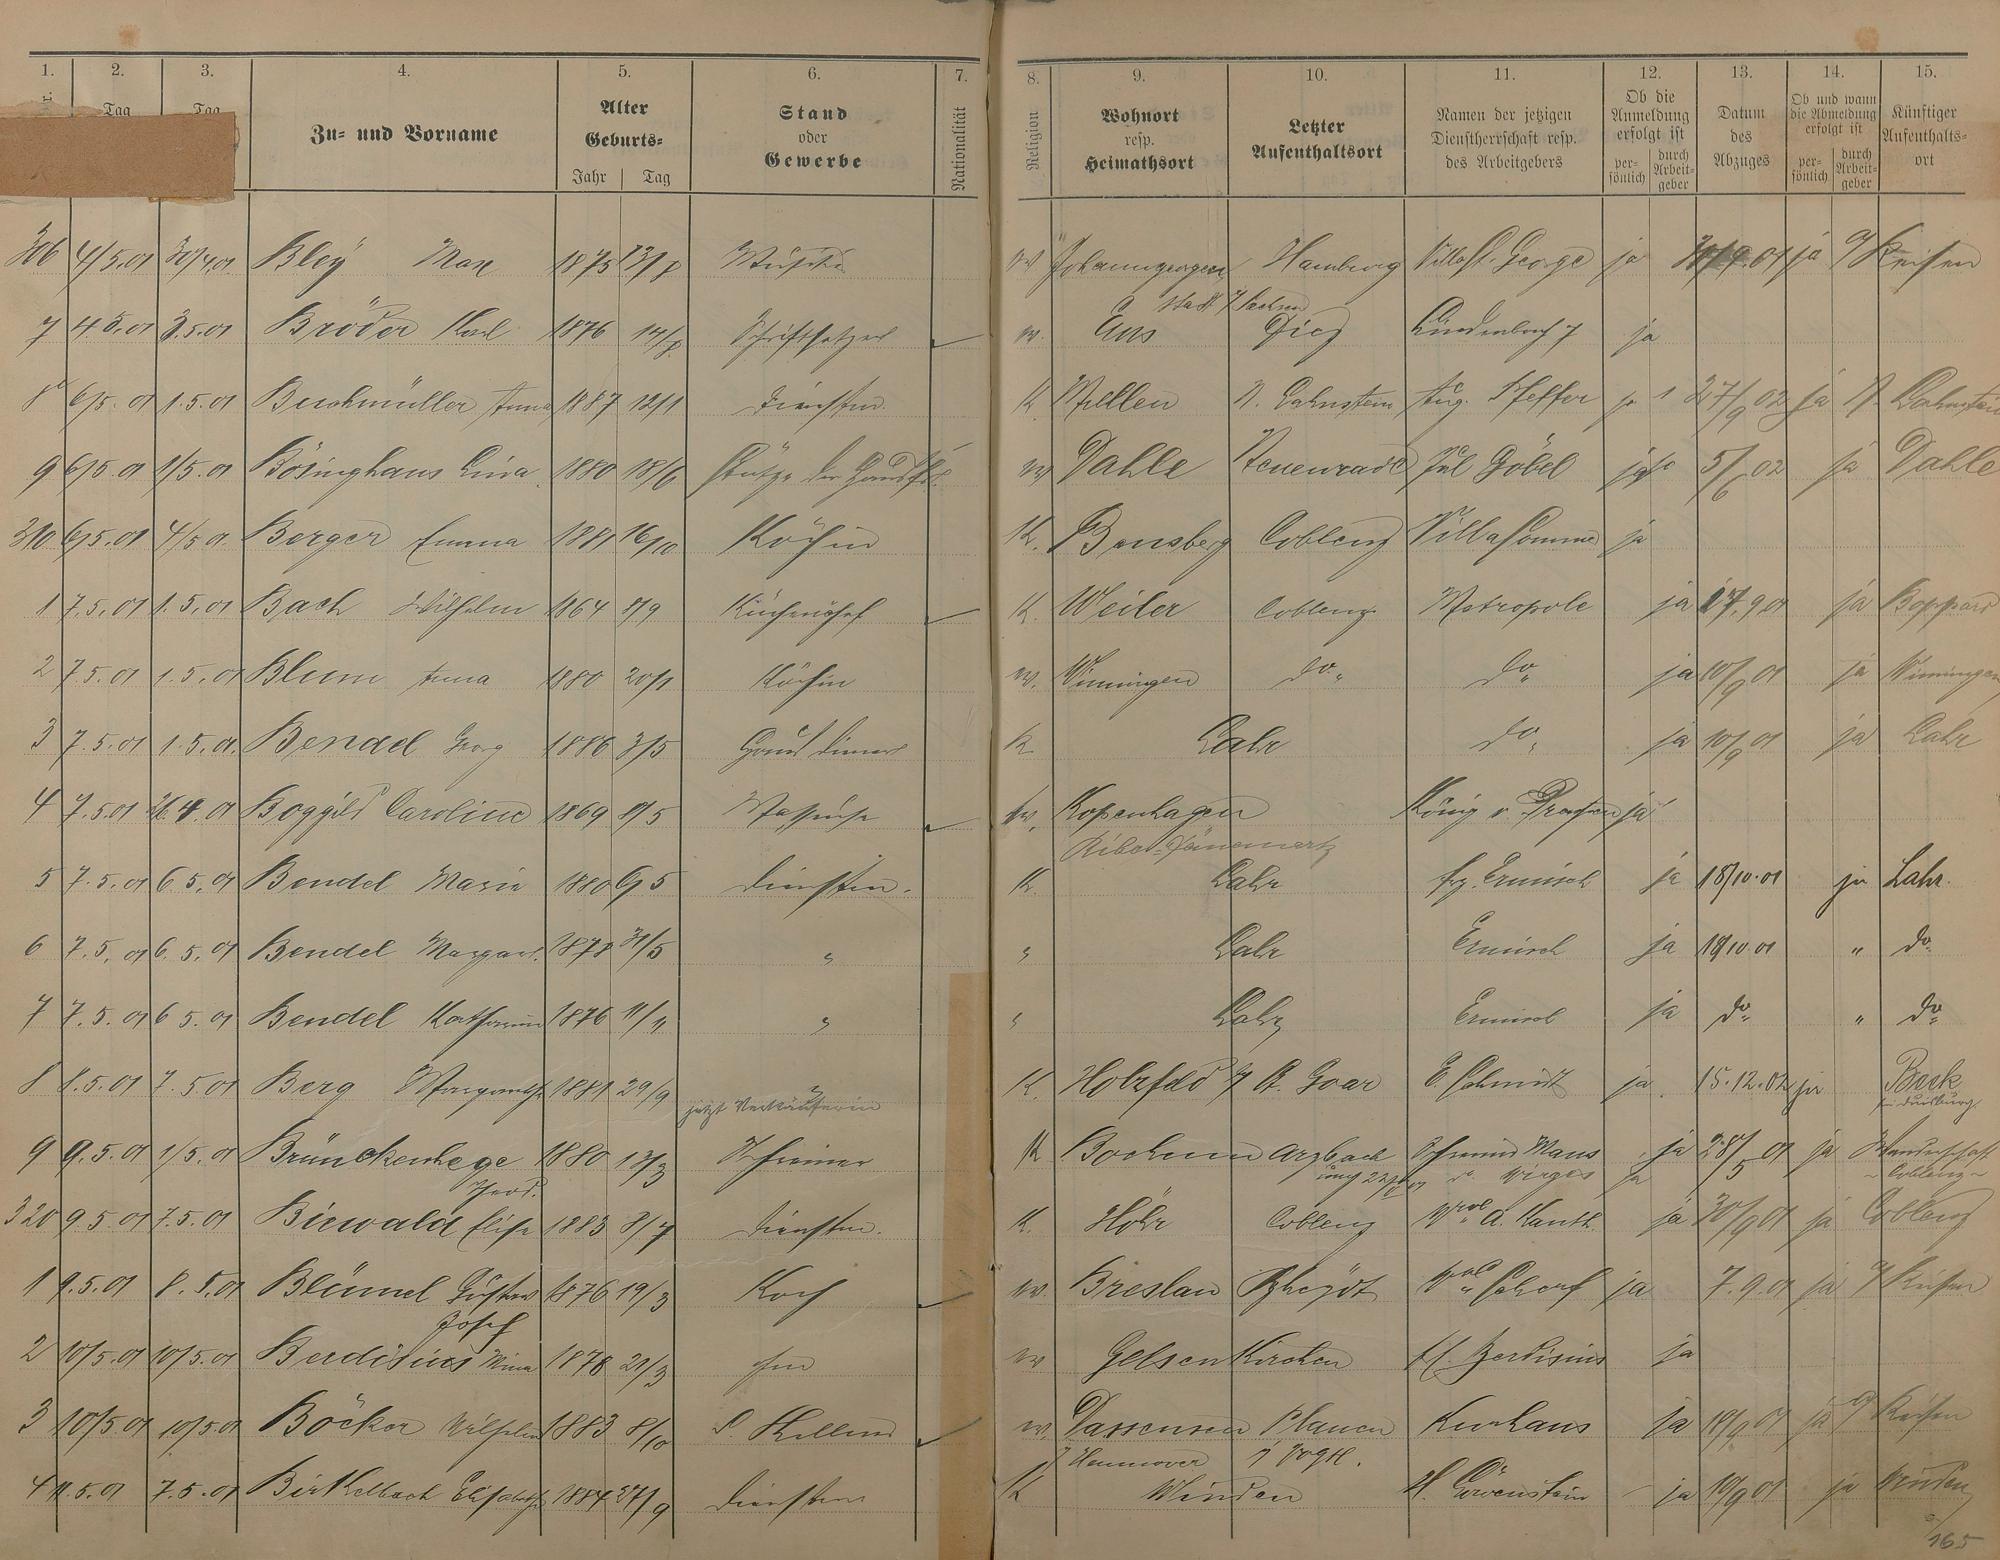 1. 2. 3. 4. 5. 6. 7. 8. 9. 10. 11. 12. 13. 14. 15.
Tag Tag Zu- und Vorname Alter Geburts- Jahr Tag Stand oder Gewerbe Nationalität Religion Wohnort resp. Heimathsort Letzter Aufenthaltsort Namen der jetzigen Dienstherrschaft resp. des Arbeitgebers Ob die Anmeldung erfolgt ist persönlich durch Arbeitgeber Datum des Abzuges Ob und wann die Abmeldung erfolgt ist persönlich durch Arbeitgeber Künftiger Aufenthaltsort
306 4/5.01 30/4.01 Bley Max 1875 13/8 Johanngeorgen Hamburg Villa St. George ja 01 ja Reisen
stadt i/ Sachsen
7 4.5.01 3.5.01 Bröder Karl 1876 14/8 Schriftsetzer w. Ems Diez Lindenbach 7 ja
8 6/5.01 1.5.01 Buchmüller Anna 1887 12/1 Dienstm. K. Miellen N. Lahnstein Aug. Pfeffer ja 27/9 02 ja N. Lahnstein
9 6/5.01 1/5.01 Bösinghaus Lina 1880 18/6 Stütze der Hausfr. w Dahle Neuenrade Jul Göbel ja 5/6 02 ja Dahle
310 6/5.01 4/5 01. Berger Emma 1881 16/10 Köchin K. Bensberg Coblenz Villa Sommer ja
1 7.5.01 1.5.01 Bach Wilhelm 1864 8/9 Küchenchef K. Weiler Coblenz Metropole ja 17.9.01 ja Boppard
2 7.5.01 1.5.01 Blum Anna 1880 20/1 Köchin w. Winningen do. do. ja 10/9 01 ja Winningen
3 7.5.01 1.5.01. Bendel Georg 1886 3/5 Hausdiener K Lahr do. ja 10/9 01 ja Lahr
4 7.5.01 26.4.01 Boggild Caroline 1869 8/5 Masseuse w. Kopenhagen König v. Preußen ja
Ribe-Dänemark
5 7.5.01 6.5.01 Bendel Maria 1880 6/5 Dienstm. K. Lahr Ermisch ja 18/10.01 ja Lahr.
6 7.5.01 6.5.01 Bendel Margar. 1878 31/5 " " Lahr Ermisch ja 18/10 01 " do.
7 7.5.01 6 5.01 Bendel Katharina 1876 11/11 " " Lahr Ermisch ja do. " do.
8 8.5.01 7.5.01 Berg Margarethe 1881 29/9 " K. Holzfeld St. Goar E. Schmidt ja 15.12.02 ja Beek
jetzt Verkäuferin bei Duisburg.
9 9.5.01 1/5.01 Brünckenhege 1880 13/3 K Bochum Arzbach Maus ja 28/5 01 ja
Theod. Wirges ja Coblenz
320 9.5.01 7.5.01 Biewald Elise 1883 8/7 Dienstm. K. Höhr Coblenz A. Kauth. ja 30/9 01 ja Coblenz
1 9.5.01 8.5.01 Blümel Gustav 1876 19/3 Koch w. Breslau Rheydt Schorf ja 7.9.01 ja Reisen
Josef
2 10/5.01 10/5.01 Berdisius Mina 1878 21/3 w Gelsenkirchen Berdisius ja
3 10/5.01 10/5.01 Böcker Wilhelm 1883 8/10 S. Kellner w. Dassensen Plauen Kurhaus ja 18/9 01 ja Reisen
Hannover i/ Vogtl.
4 11.5.01 7.5.01 Birkelbach Elisabeth 1884 27/9 Dienstm. K Winden H. Löwenstein ja 10/9 01 ja Winden
165